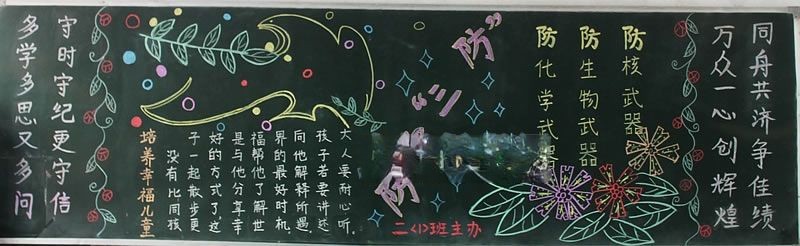 守时守纪更守信
多学多思又多问
培养幸福儿童
没有比同孩
子一起散步更
好的方式了这
是与他分享幸
福帮他了解世
界的最好时机。
向他解释所遇
孩子若要讲述
大人要耐心听。
防“三防”
防核武器
防生物武器
防化学武器
二<1>班主办
同舟共济争佳绩
万众一心创辉煌